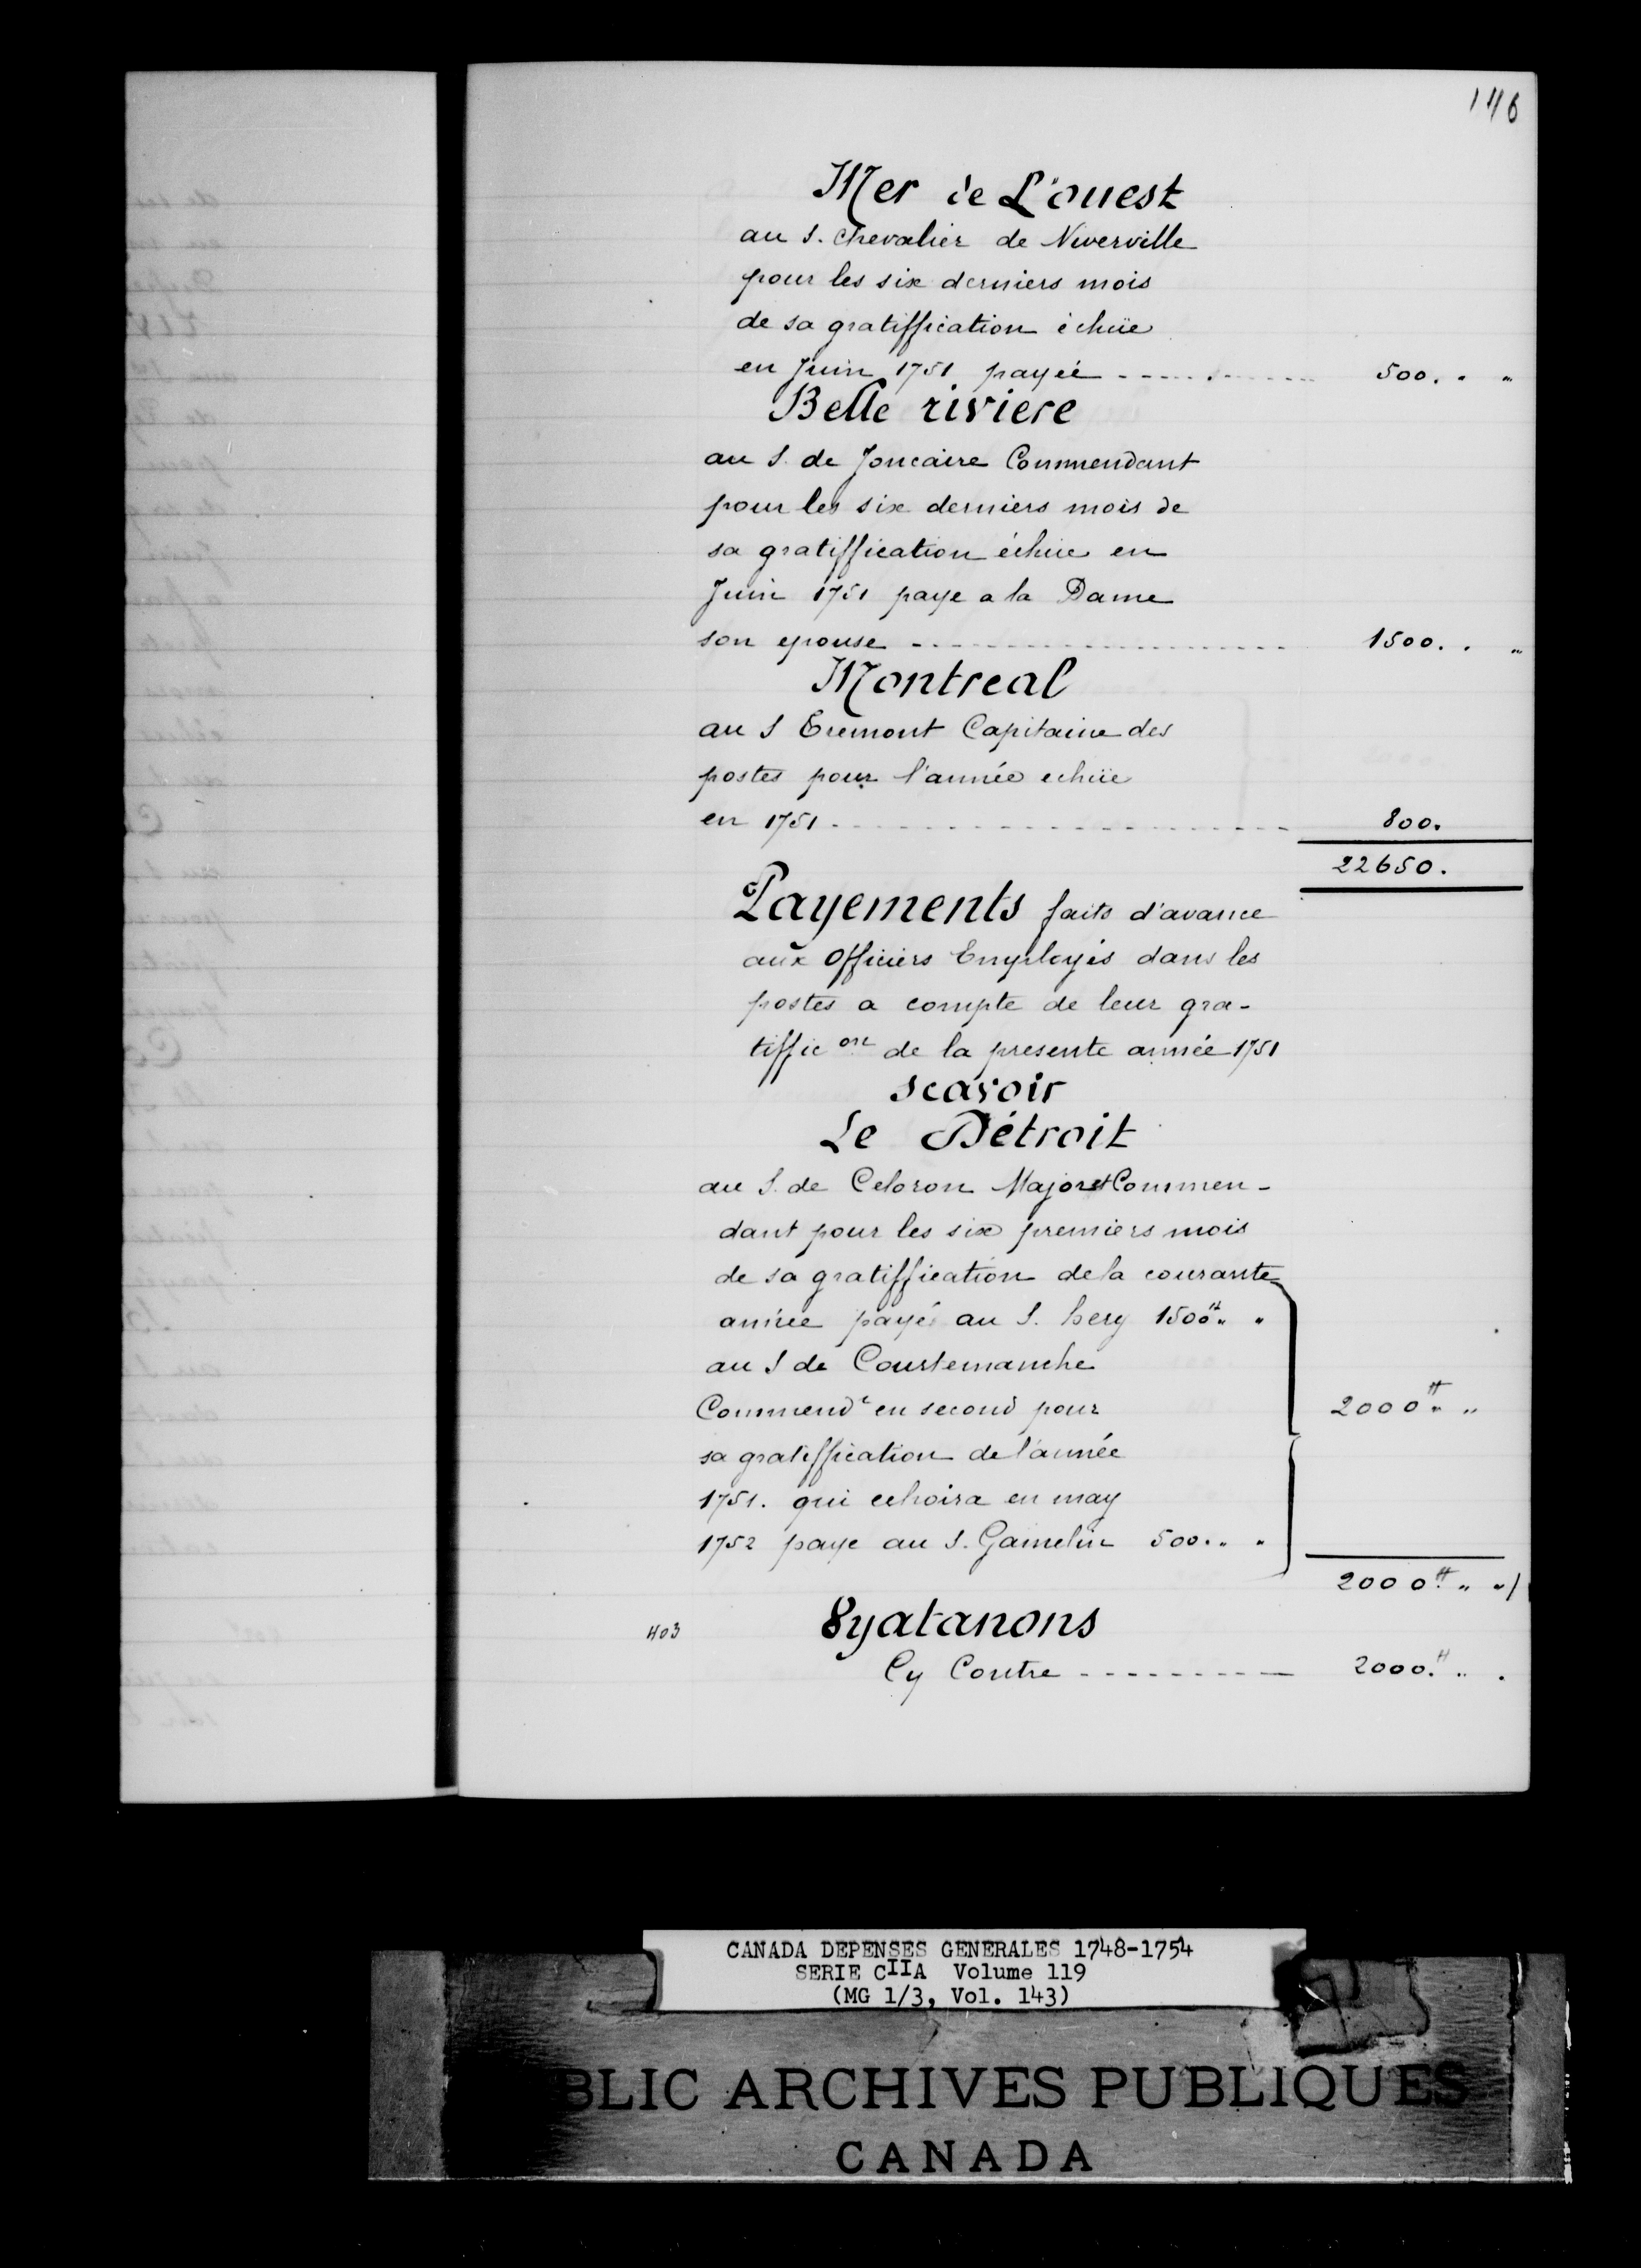 146
Mer de L'ouest
au S. Chevalier de Niverville
pour les six derniers mois
de sa gratiffication échüe
en Juin 1751 payée ------------ 500. . "
Belle riviere
au S. de Joncaire Commendant
pour les six derniers mois de
sa gratiffication échüe en
Juin 1751 paye a la Dame
son epouse -------------------- 1500. . "
Montreal
au S Eremont Capitaine des
postes pour l'année echüe
en 1751 ---------------------- 800.
22650.
Payements faits d'avance
aux Officiers Employés dans les
postes a compte de leur gra-
tiffic on de la presente année 1751
scavoir
Le Détroit
au S. de Celoron Major et Commen-
dant pour les six premiers mois
de sa gratiffication de la courante
année payé au S. hery 1500 ₶ " "
au S de Courtemanche
Commendt en second pour 2000 ₶ " "
sa gratiffication de l'année
1751. qui echoira en may
1752 paye au S. Gamelin 500. " "
2000 ₶ " "/
403 8yatanons
Cy Contre ---------- 2000. ₶ " .
CANADA DEPENSES GENERALES 1748-1754
SERIE CIIA Volume 119
(MG 1/3, Vol. 143)
BLIC ARCHIVES PUBLIQUES
CANADA